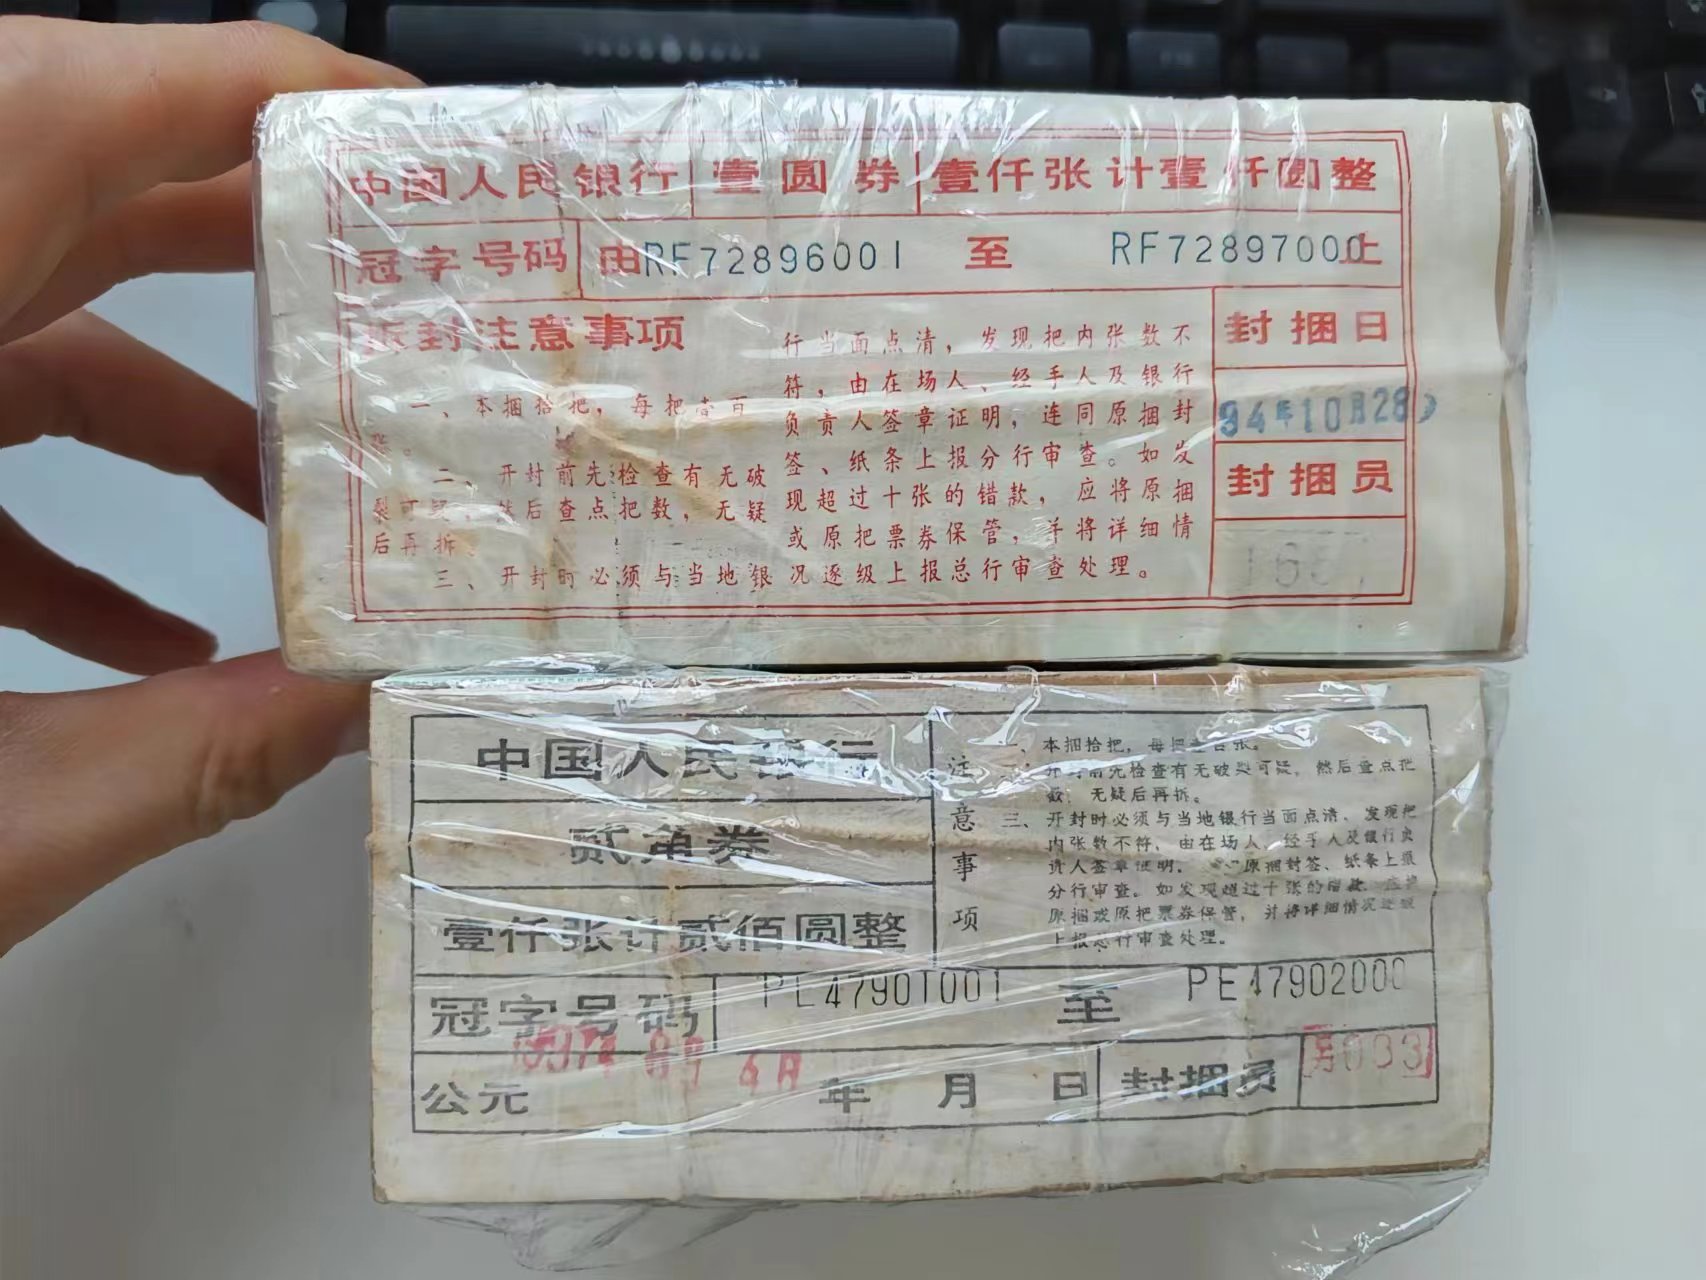 中国人民银行 壹圆券 壹仟张计壹仟圆整
冠字号码 由RF72896001 至 RF72897000止
拆封注意事项
一、本捆拾把，每把壹百
张。
二、开封前先检查有无破
裂可疑，然后查点把数，无疑
后再拆。
三、开封时必须与当地银
行当面点清，发现把内张数不
符，由在场人、经手人及银行
负责人签章证明，连同原捆封
签、纸条上报分行审查。如发
现超过十张的错款，应将原捆
或原把票券保管，并将详细情
况逐级上报总行审查处理。
封捆日
94年10月28
封捆员
中国人民银行
贰角券
壹仟张计贰佰圆整
注意事项
一、本捆拾把，每把壹百张。
二、开封前先检查有无破裂可疑，然后查点把
数，无疑后再拆。
三、开封时必须与当地银行当面点清、发现把
内张数不符，由在场人、经手人及银行负
责人签章证明，原捆封签、纸条上报
分行审查。如发现超过十张的错款，应将
原捆或原把票券保管，并将详细情况逐级
上报总行审查处理。
冠字号码 PE47901001 至 PE47902000
公元 年 月 日 封捆员